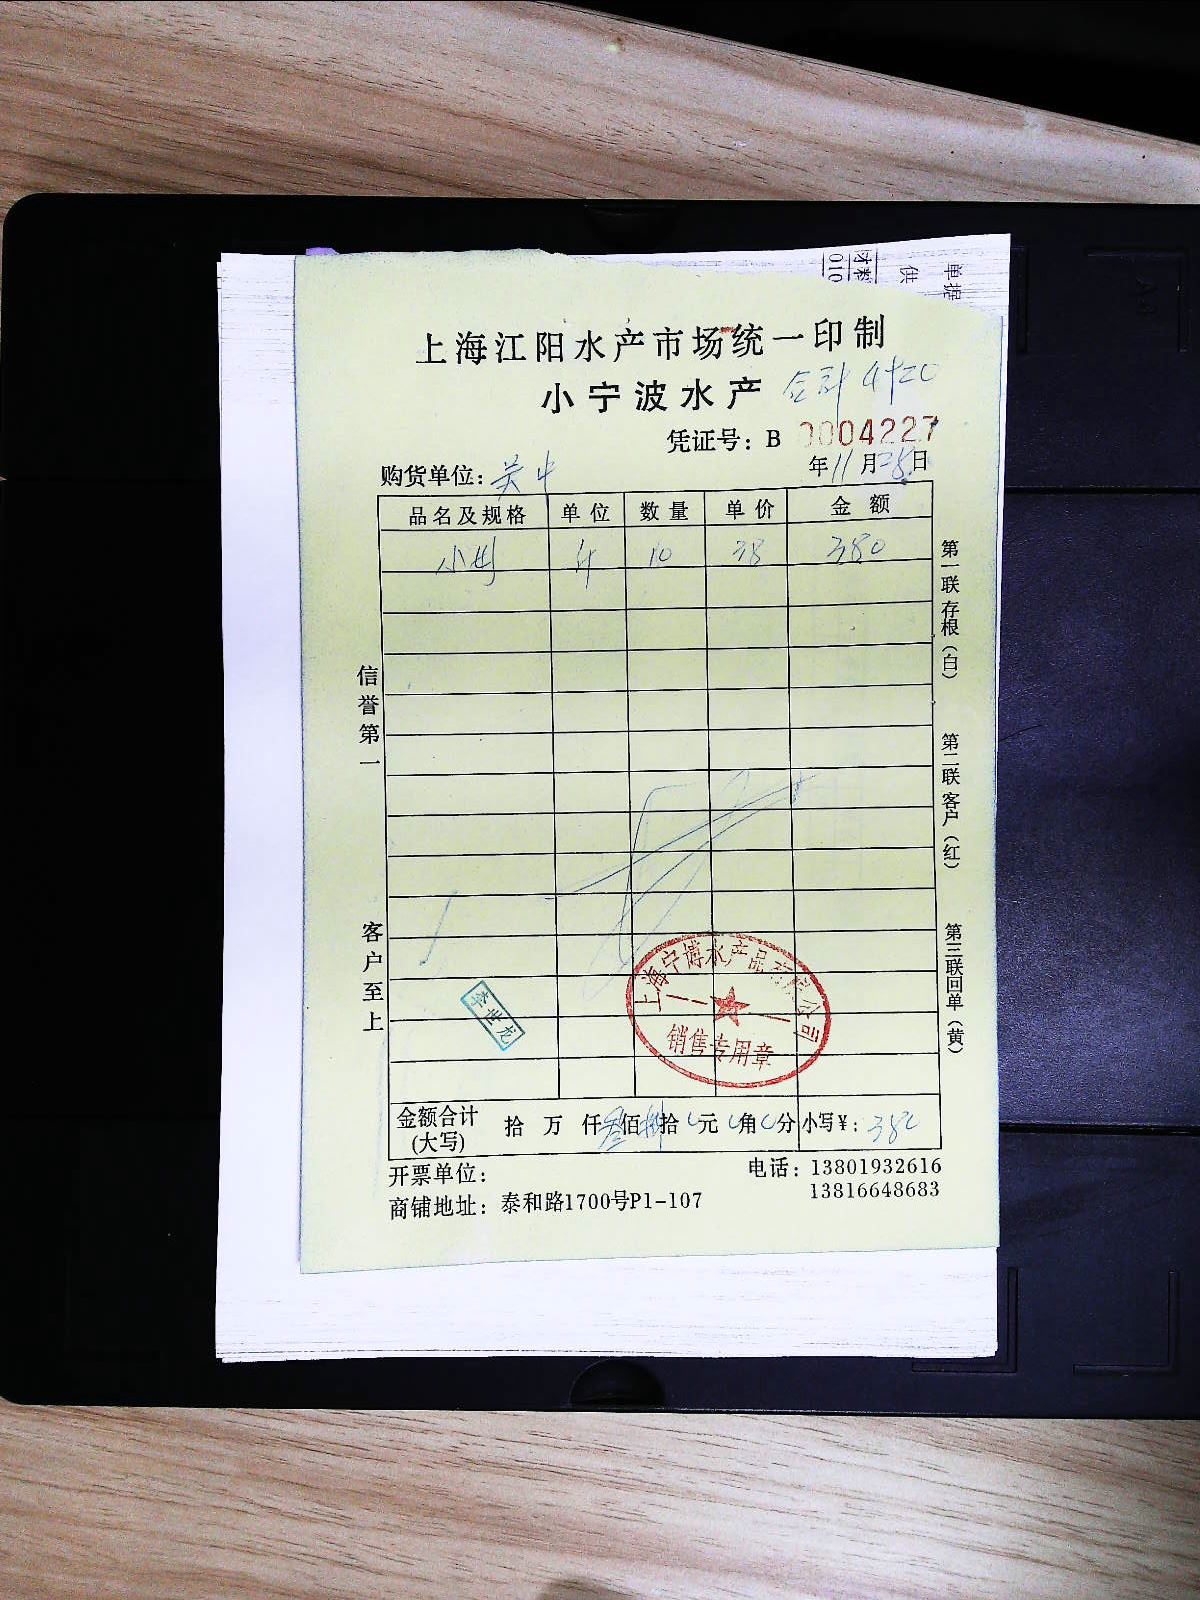 单据
供
材料
010
上海江阳水产市场统一印制
小宁波水产
合计 4420
凭证号：B 0004227
购货单位：
年11月28日
品名及规格 单位 数量 单价 金额
斤 10 38 380
信誉第一
客户至上
第一联 存根（白）
第二联 客户（红）
第三联 回单（黄）
李世龙
上海宁博水产品有限公司
销售专用章
金额合计（大写） 拾 万 仟叁佰捌拾0元0角0分 小写¥：380
开票单位：
电话：13801932616
13816648683
商铺地址：泰和路1700号P1-107
A4